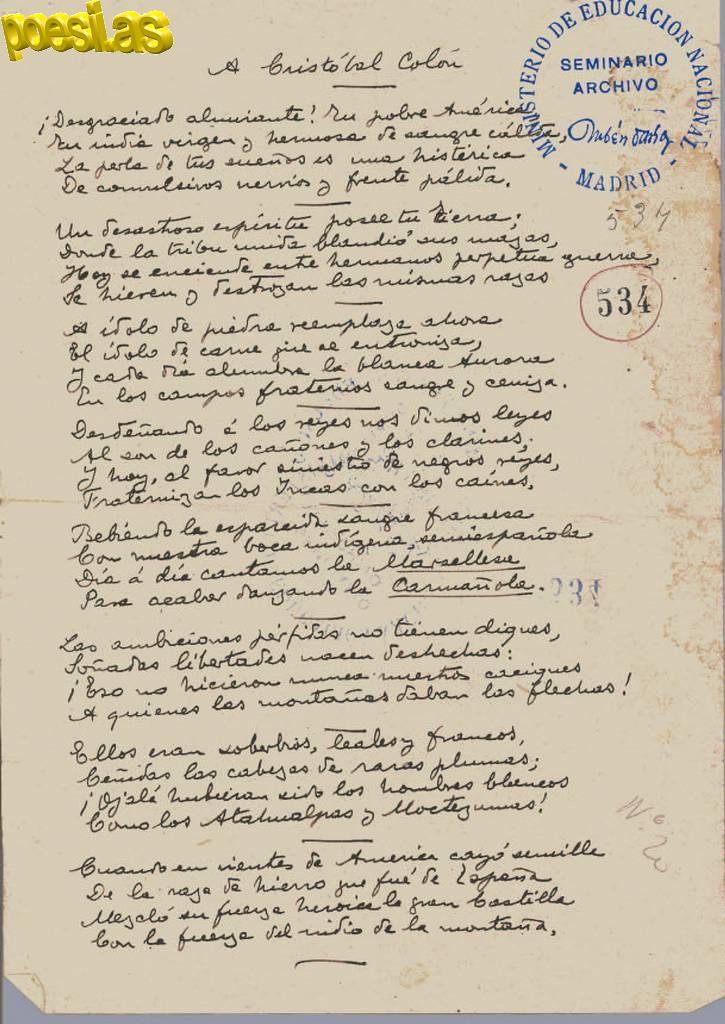 poesi.as
MINISTERIO DE EDUCACION NACIONAL
- MADRID -
SEMINARIO
ARCHIVO
Rubén Darío
A Cristóbal Colón
¡Desgraciado almirante! Tu pobre América
Tu india virgen y hermosa de sangre cálida,
La perla de tus sueños es una histérica
De convulsivos nervios y frente pálida.
Un desastroso espíritu posee tu tierra;
Donde la tribu unida blandió sus mazas,
Hoy se enciende entre hermanos perpetua guerra,
Se hieren y destrozan las mismas razas
534
534
A ídolo de piedra reemplaza ahora
El ídolo de carne que se entroniza,
Y cada día alumbra la blanca Aurora
En los campos fraternos sangre y ceniza.
Desdeñando á los reyes nos dimos leyes
Al son de los cañones y los clarines,
Y hoy, al favor siniestro de negros reyes,
Fraternizan los Incas con los caínes.
Bebiendo la esparcida sangre francesa
Con nuestra boca indígena, semiespañola
Día á día cantamos la Marsellesa
Para acabar danzando la Carmañola.
Las ambiciones pérfidas no tienen diques,
Soñadas libertades nacen deshechas:
¡Eso no hicieron nunca nuestros caciques
A quienes las montañas daban las flechas!
Ellos eran soberbios, leales y francos,
Ceñidas las cabezas de raras plumas;
¡Ojalá hubieran sido los hombres blancos
Como los Atahualpas y Moctezumas!
Cuando en vientres de America cayó semilla
De la raza de hierro que fué de España
Mezcló su fuerza heroica la gran Castilla
Con la fuerza del indio de la montaña.